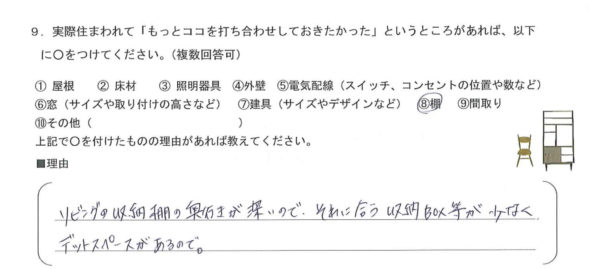 ９．実際住まわれて「もっとココを打ち合わせしておきたかった」というところがあれば、以下
に〇をつけてください。（複数回答可）
① 屋根　② 床材　③ 照明器具　④外壁　⑤電気配線（スイッチ、コンセントの位置や数など）
⑥窓（サイズや取り付けの高さなど）　⑦建具（サイズやデザインなど）　⑧棚　⑨間取り
⑩その他（　　　　　　　　　　　）
上記で〇を付けたものの理由があれば教えてください。
■理由
リビングの収納棚の奥行きが深いので、それに合う収納BOX等が少なく
デットスペースがあるので。